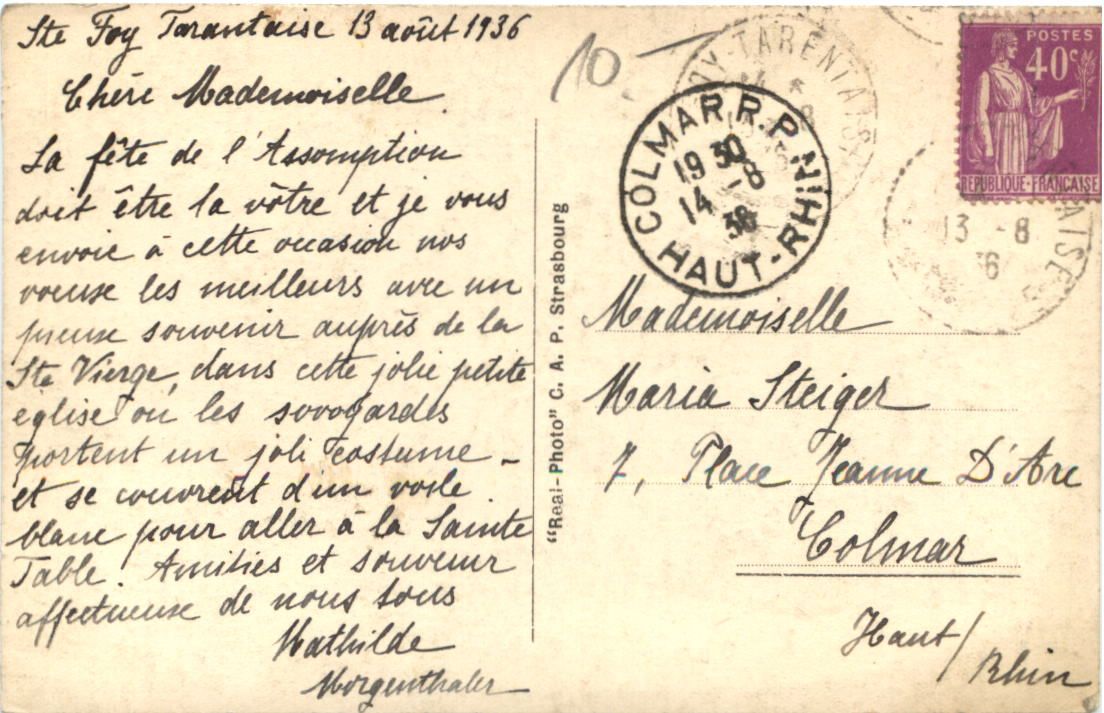 Ste Foy Tarantaise 13 août 1936
Chère Mademoiselle.
La fête de l'Assomption
doit être la vôtre et je vous
envoie à cette occasion nos
voeuse les meilleurs avec un
pieuse souvenir auprès de la
Ste Vierge, dans cette jolie petite
église où les sovoyardes
portent un joli costume -
et se couvrent d'un voile
blanc pour aller à la Sainte
Table. Amitiés et souvenir
affectueuse de nous tous
Mathilde
Morgenthaler
"Real-Photo" C. A. P. Strasbourg
10 -
COLMAR R.P.
19 30
14 -8
36
HAUT-RHIN
POSTES
40c
REPUBLIQUE-FRANÇAISE
13 -8
36
Mademoiselle
Maria Steiger
7, Place Jeanne D'Arc
Colmar
Haut/
Rhin